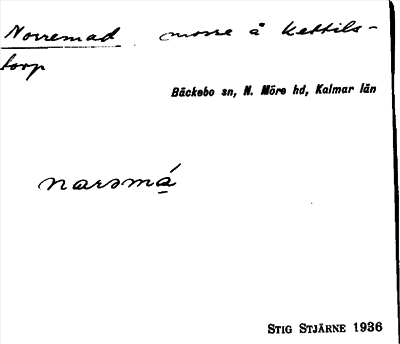 Norremad mosse å Kettils-
torp
Bäckebo sn, N. Möre hd, Kalmar län
narəmá̠
STIG STJÄRNE 1936